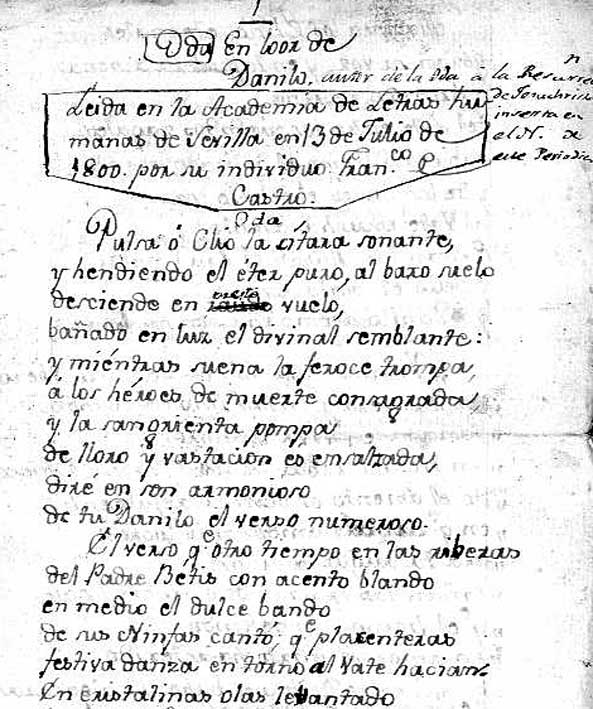 1
Oda En loor de
Danilo, autor de la Oda a la Resurrecn
de Jesuchristo
inserta en
el N. de
este Periodico
Leida en la Academia de Letras hu
manas de Sevilla en 13 de Julio de
1800. por su individuo Fran.co P
Castro.
Oda
Pulsa ó Clio la cítara sonante,
y hendiendo el éter puro, al baxo suelo
desciende en presto vuelo,
bañado en luz el divinal semblante:
y miéntras suena la feroce trompa,
á los héroes de muerte consagrada,
y la sangrienta pompa
de lloro y vastacion es ensalzada,
diré en son armonioso
de tu Danilo el verso numeroso.
El verso qe otro tiempo en las riberas
del Padre Bétis con acento blando
en medio el dulce bando
de sus Ninfas cantó; qe placenteras
festiva danza en torno al Vate hacian.
En cristalinas olas levantado